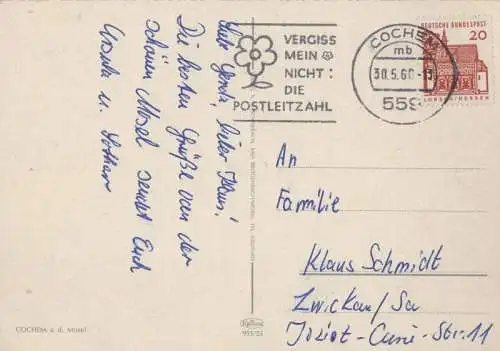 Liebe Gerda, lieber Klaus!
Die besten Grüße von der
schönen Mosel sendet Euch
Ursula u. Lothar
COCHEM a. d. Mosel
VERGISS
MEIN
NICHT:
DIE
POSTLEITZAHL
COCHEM
mb
30.5.66-13
559
DEUTSCHE BUNDESPOST
20
LORSCH/HESSEN
An
Familie
Klaus Schmidt
Zwickau/Sa
Joliot-Curie-Str. 11